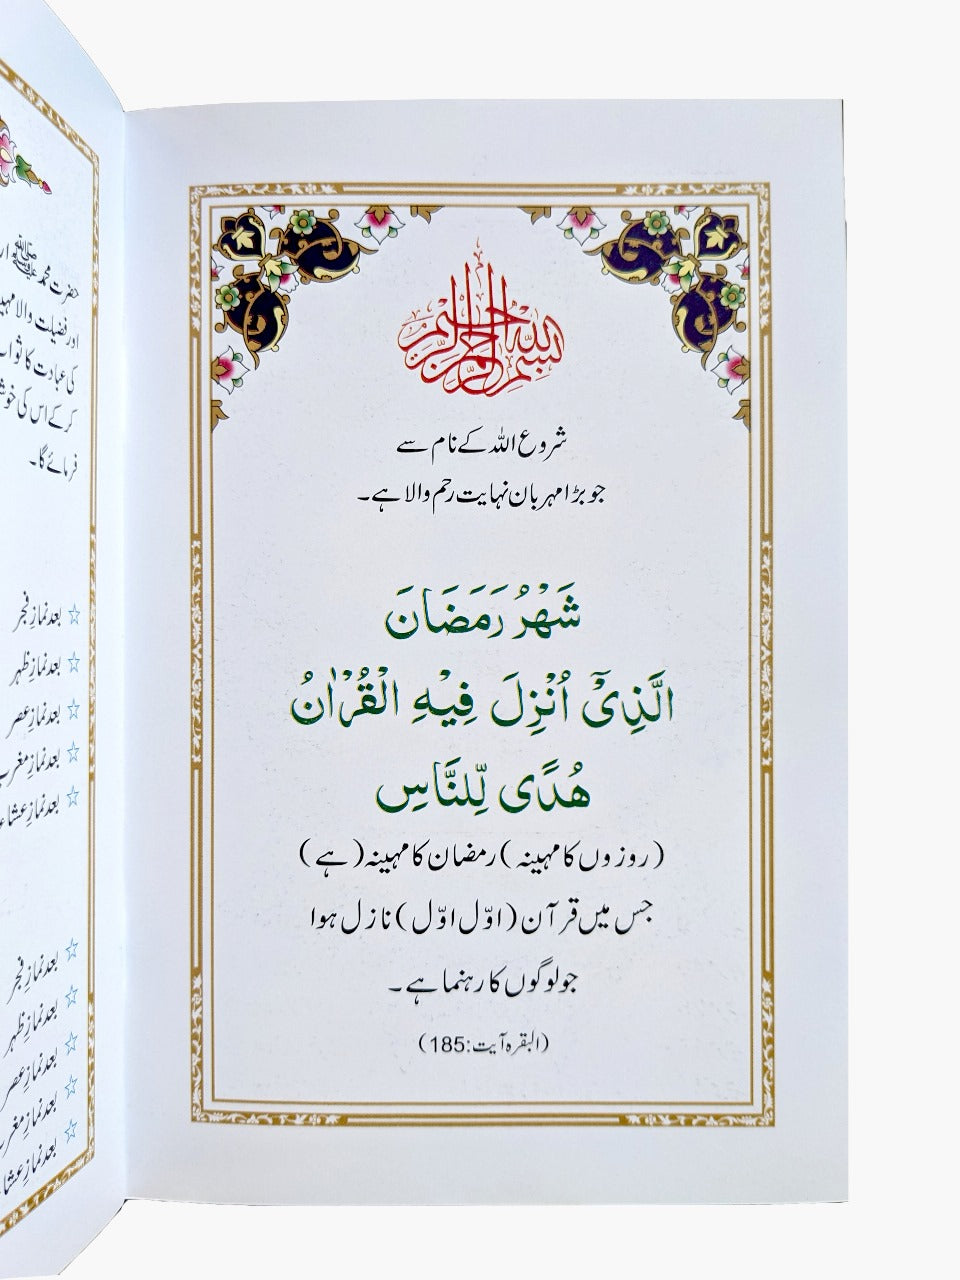 بسم الله الرحمن الرحيم
شروع اللہ کے نام سے
جو بڑا مہربان نہایت رحم والا ہے۔
شَهْرُ رَمَضَانَ
الَّذِیْۤ اُنْزِلَ فِیْهِ الْقُرْاٰنُ
هُدًی لِّلنَّاسِ
(روزوں کا مہینہ) رمضان کا مہینہ (ہے)
جس میں قرآن (اوّل اوّل) نازل ہوا
جو لوگوں کا رہنما ہے۔
(البقرہ آیت:185)
حضرت محمد ﷺ
اور فضیلت والا
کی عبادت کا
کر کے اس کی
فرمائے گا۔
☆ بعد نمازِ فجر
☆ بعد نمازِ ظہر
☆ بعد نمازِ عصر
☆ بعد نمازِ مغرب
☆ بعد نمازِ عشاء
☆ بعد نمازِ فجر
☆ بعد نمازِ ظہر
☆ بعد نمازِ عصر
☆ بعد نمازِ مغرب
☆ بعد نمازِ عشاء